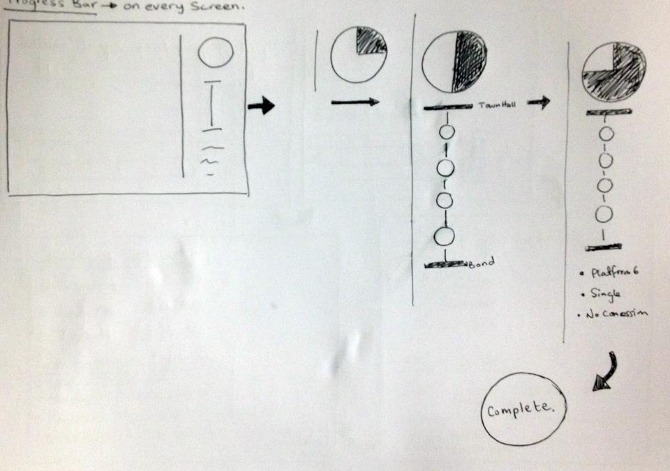 Progress Bar → on every Screen.
Town Hall
Bond
• Platform 6
• Single
• No Concession
Complete.